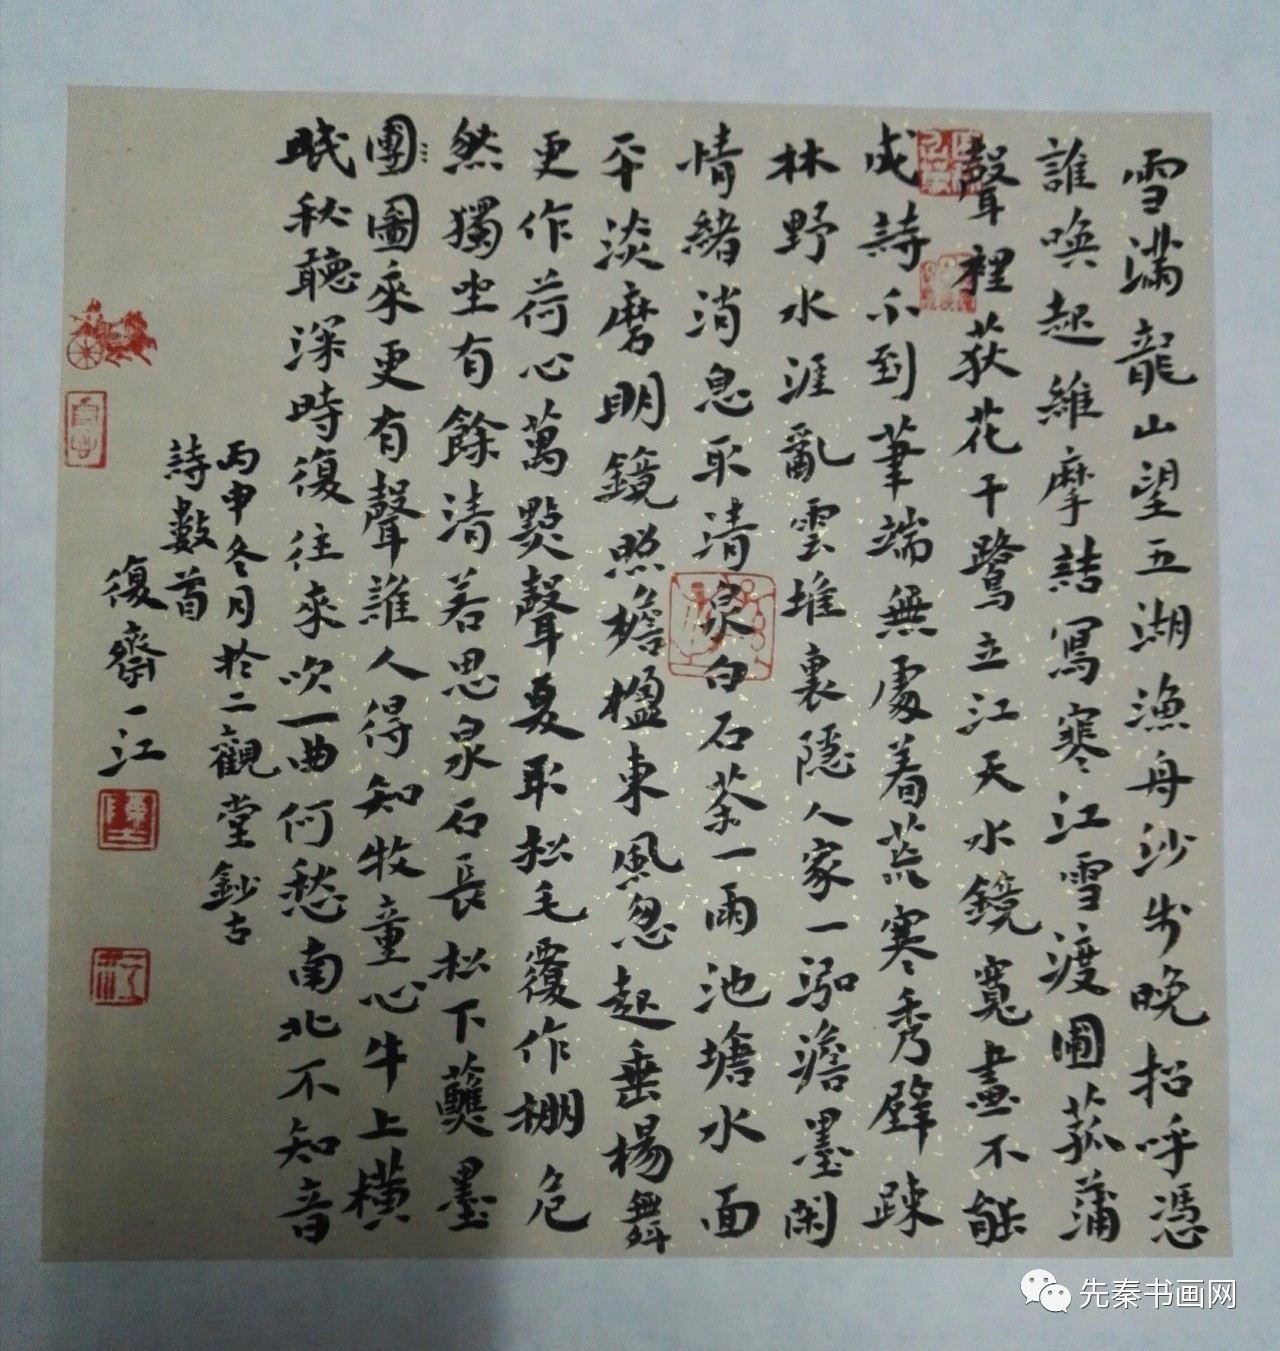 雪滿龍山望五湖漁舟沙步晚招呼憑
誰喚起維摩詰寫寒江雪渡圖菰蒲
聲裡荻花干鷺立江天水鏡寬畫不能
成詩不到筆端無處着荒寒秀壁疎
林野水涯亂雲堆裏隱人家一泓澹墨閑
情緒消息取清泉白石茶一雨池塘水面
平淡磨明鏡照檐楹東風忽起垂楊舞
更作荷心萬點聲夏取松毛覆作棚危
然獨坐有餘清若思泉石長松下蘸墨
團團圖來更有聲誰人得知牧童心牛上橫
眠秋聽深時復往來吹一曲何愁南北不知音
丙申冬月於二觀堂鈔古
詩數首
復齋一江
先秦书画网